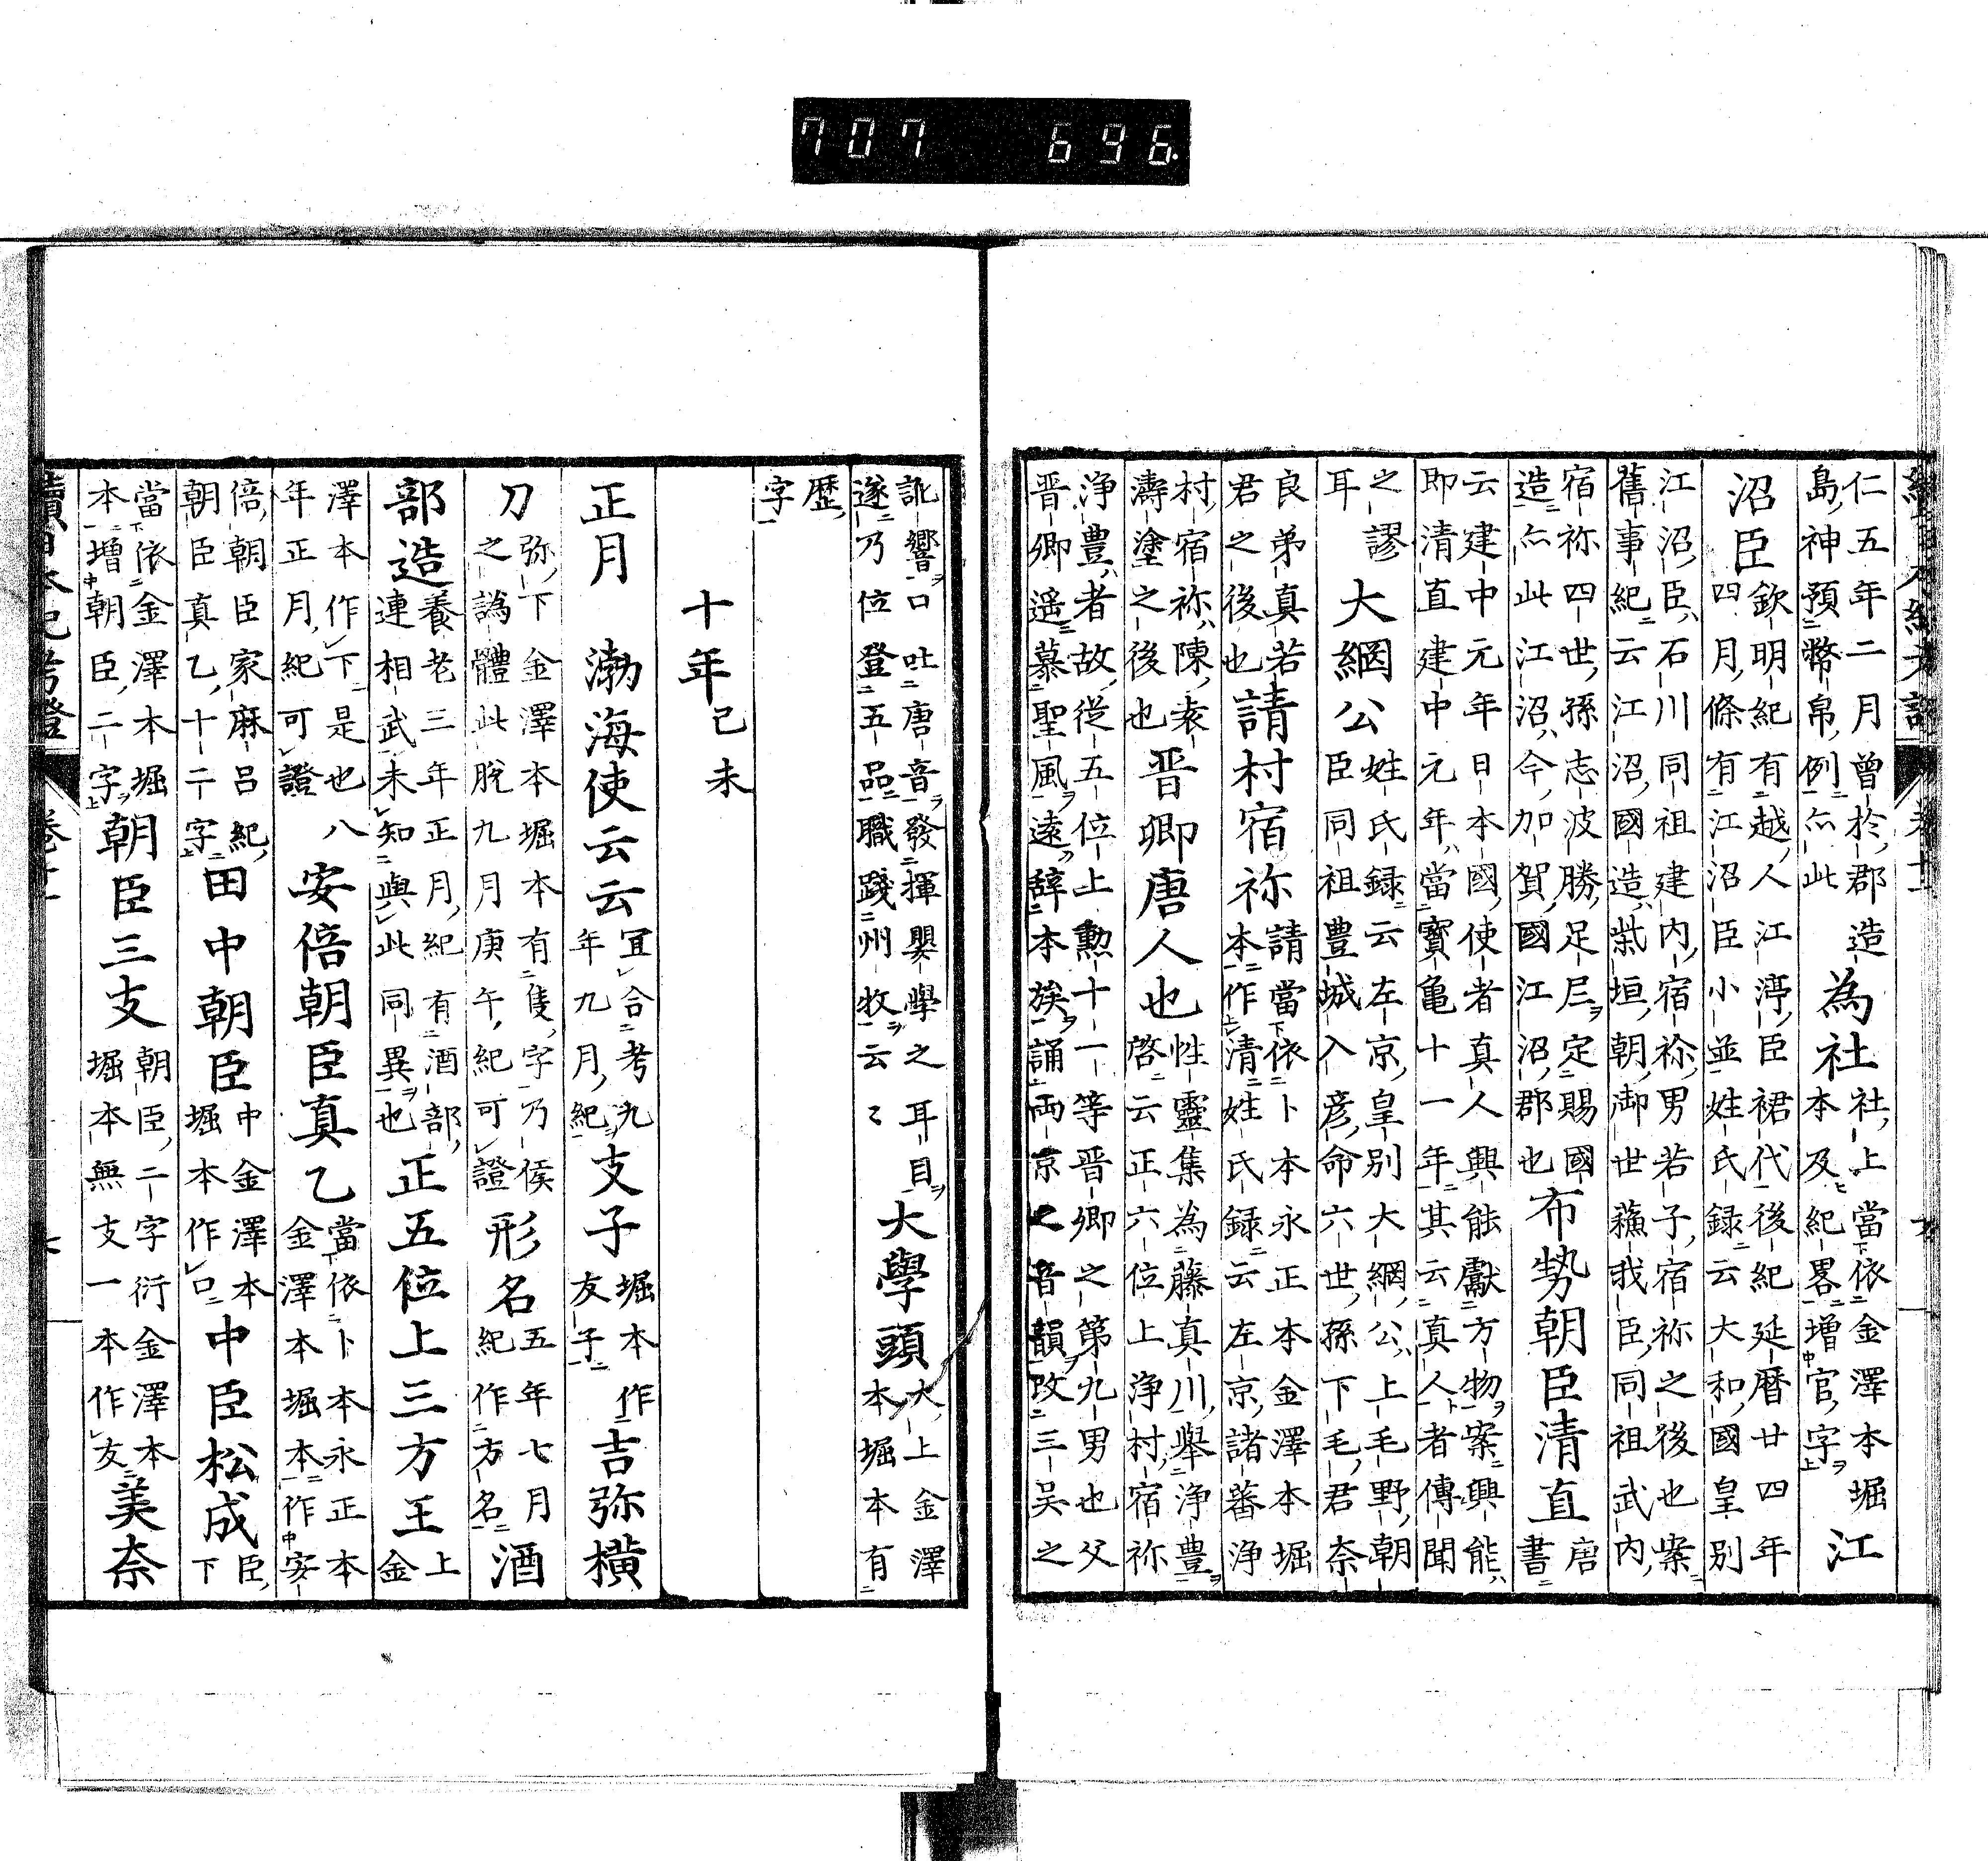 仁五年二月曾於郡造島神預幣帛例亦此為社社上當依金澤本堀本及紀畧增官字江
沼臣欽明紀有越人江渟臣裙代後紀延暦廿四年四月條有江沼臣小並姓氏録云大和國皇別
江沼臣石川同祖建内宿祢男若子宿祢之後也案舊事紀云江沼國造柴垣朝御世蘓我臣同祖武内
宿祢四世孫志波勝足尼定賜國造亦此江沼今加賀國江沼郡也布勢朝臣清直唐書
云建中元年日本國使者真人興能獻方物案興能即清直建中元年當寶亀十一年其云真人者傳聞
之謬耳大網公姓氏録云左京皇別大網公上毛野朝臣同祖豊城入彦命六世孫下毛君奈
良弟真若君之後也請村宿祢請當依卜本永正本金澤本堀本作清姓氏録云左京諸蕃浄
村宿祢陳袁濤塗之後也晋卿唐人也性靈集為藤真川舉浄豊啓云正六位上浄村宿祢
浄豊者故從五位上勲十一等晋卿之第九男也父晋卿遥慕聖風遠辞本族誦両京之音韻改三吳之
訛響口吐唐音發揮嬰學之耳目遂乃位登五品職踐州牧云々大學頭大上金澤本堀本有
歷字
十年己未
正月 渤海使云云冝合考九年九月紀支子堀本作友子吉弥横
刀弥下金澤本堀本有隻字乃侯之譌體此脫九月庚午紀可證形名五年七月紀作方名酒
部造養老三年正月紀有酒部連相武未知與此同異也正五位上三方王上金
澤本作下是也八年正月紀可證安倍朝臣真乙當依卜本永正本金澤本堀本作安
倍朝臣家麻呂紀朝臣真乙十二字田中朝臣中金澤本堀本作口中臣松成臣下
當依金澤本堀本增朝臣二字朝臣三支朝臣二字衍金澤本堀本無支一本作友美奈
續日本紀考證 卷十一
707 696.